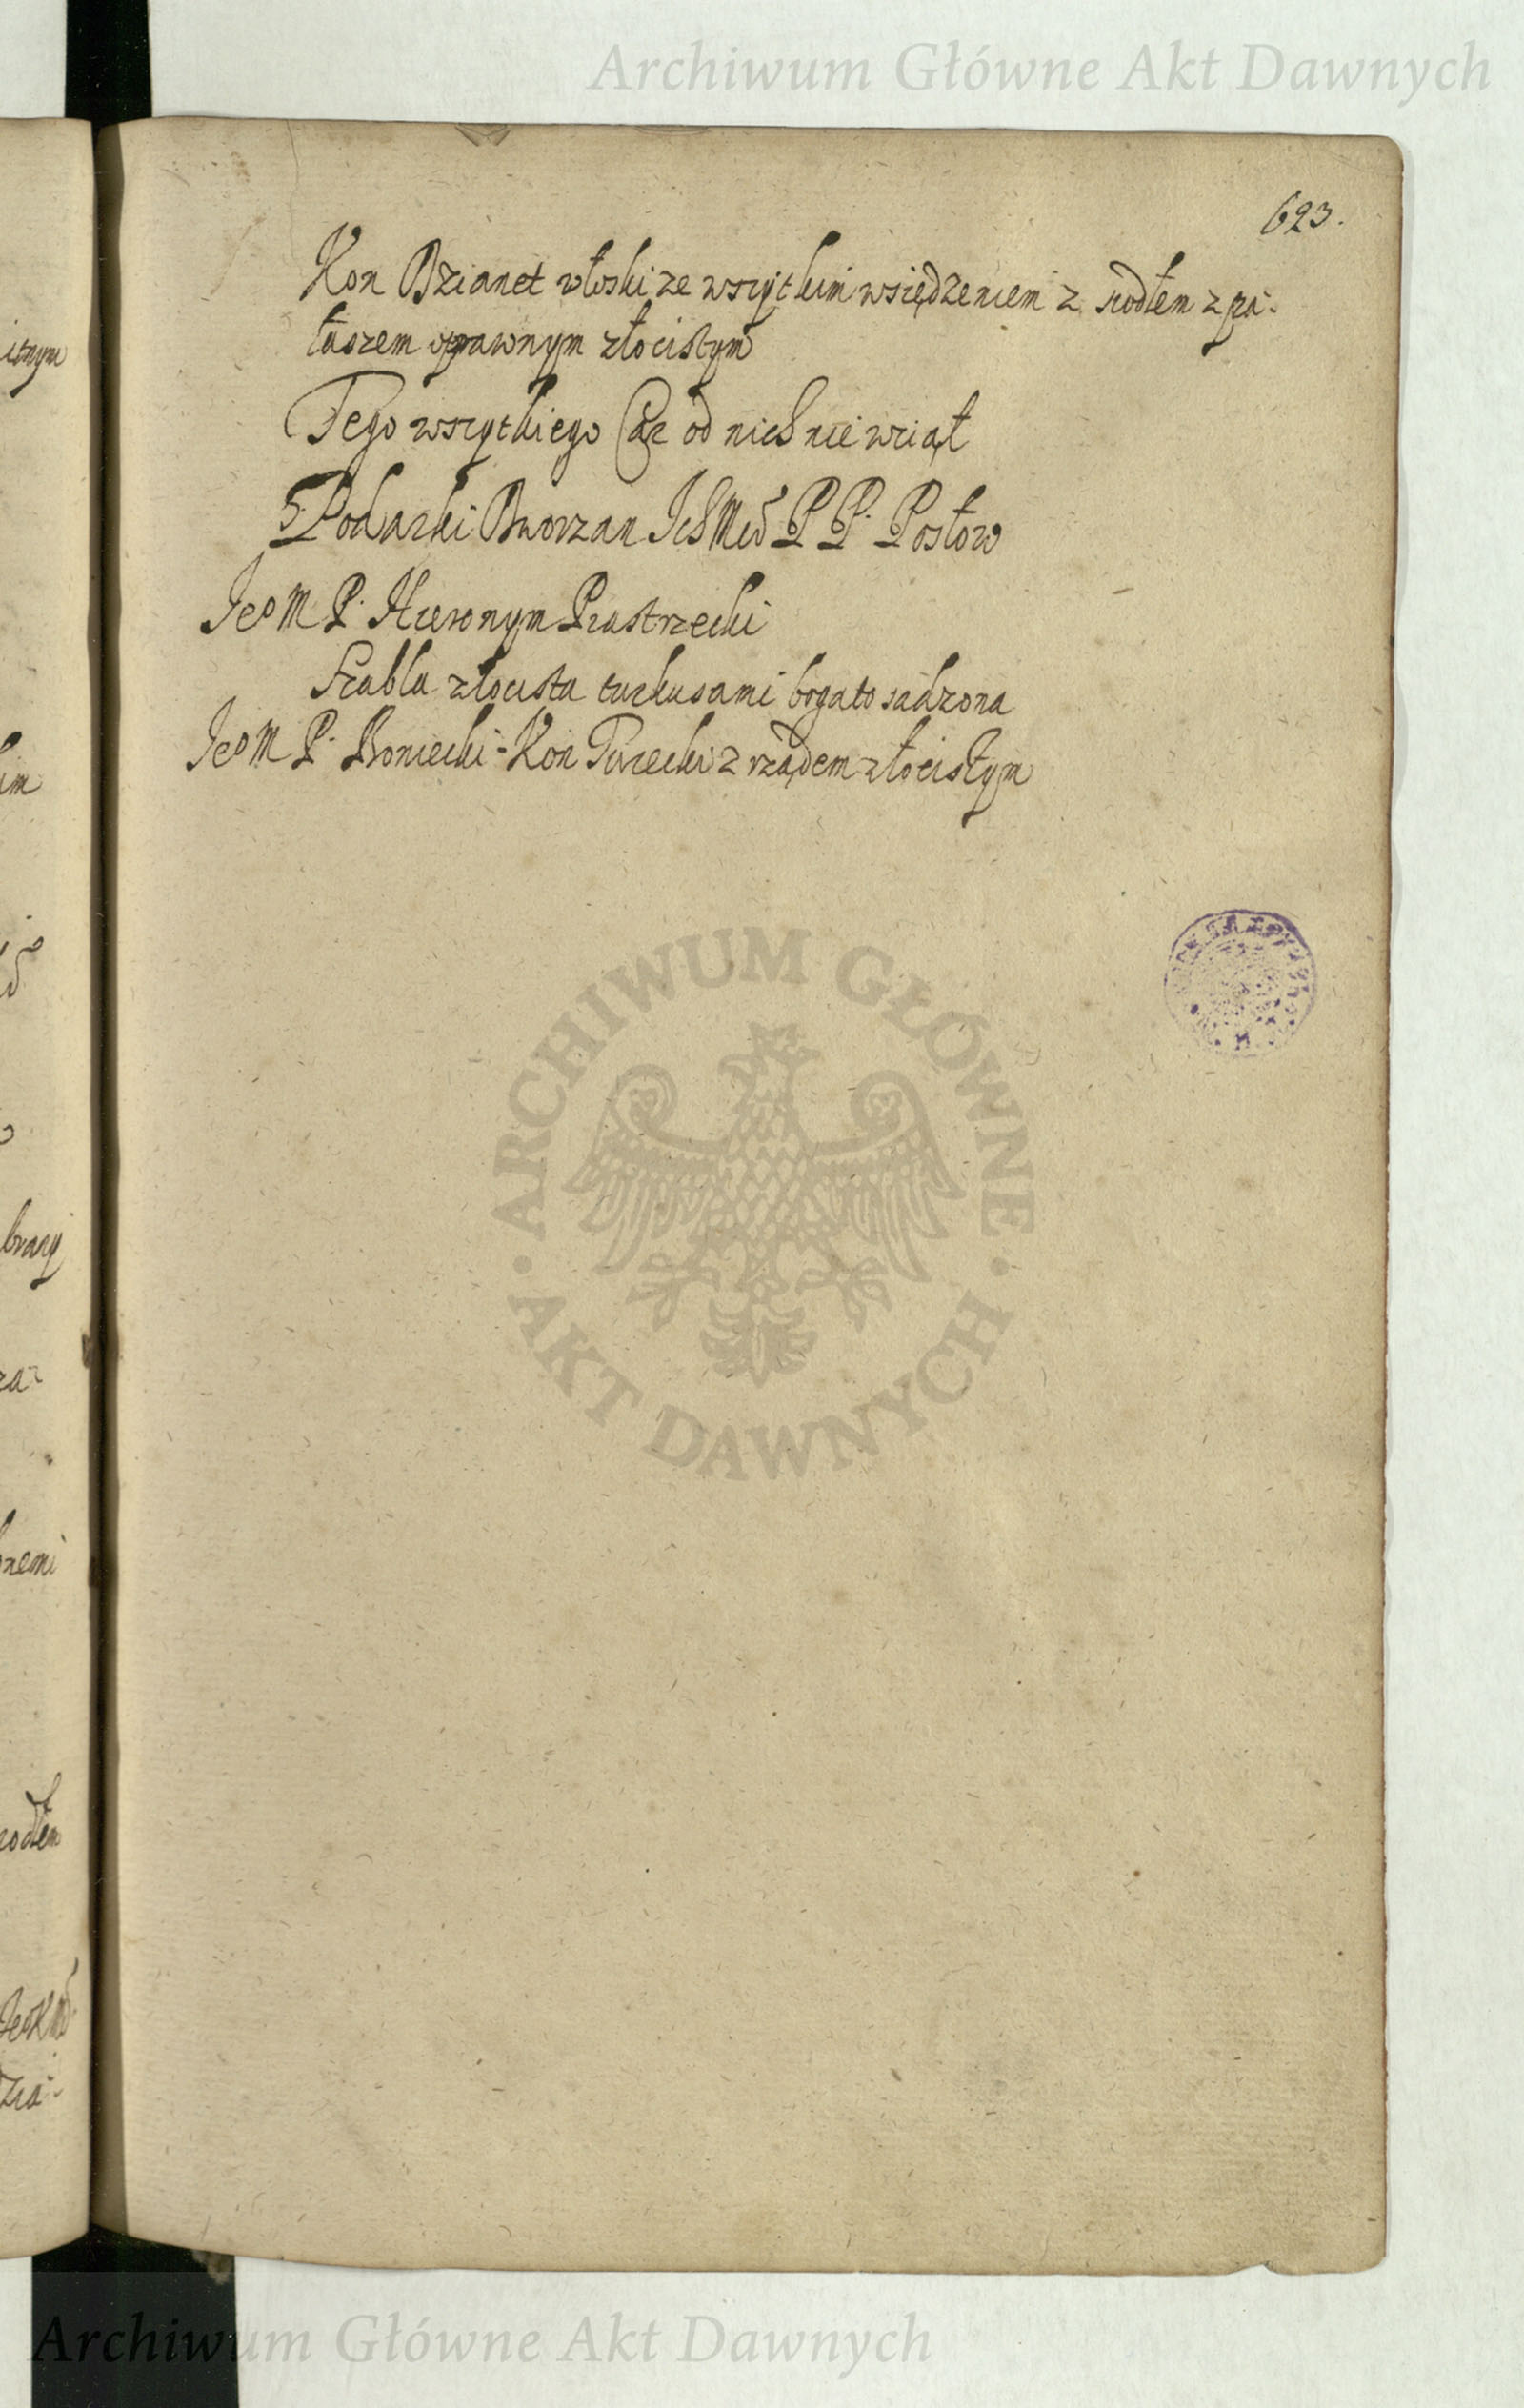 Archiwum Główne Akt Dawnych
623.
Kon Dzianet włoski ze wszytkim wsiędzeniem z siodłem z pa-
łaszem oprawnym złocistym
Tego wszytkiego Car od nich nie wziął
Podarki Dworzan Ich Mciów PP. Posłow
Jeo M P. Hieronym
Szabla złocista turkusami bogato sadzona
Jeo M P. Kon Turecki z rządem złocistym
ARCHIWUM GŁÓWNE
AKT DAWNYCH
Archiwum Główne Akt Dawnych